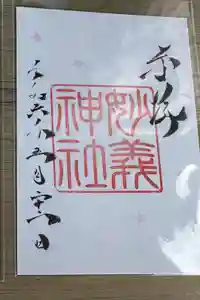 奉拝
妙義
神社
令和六年五月二十六日